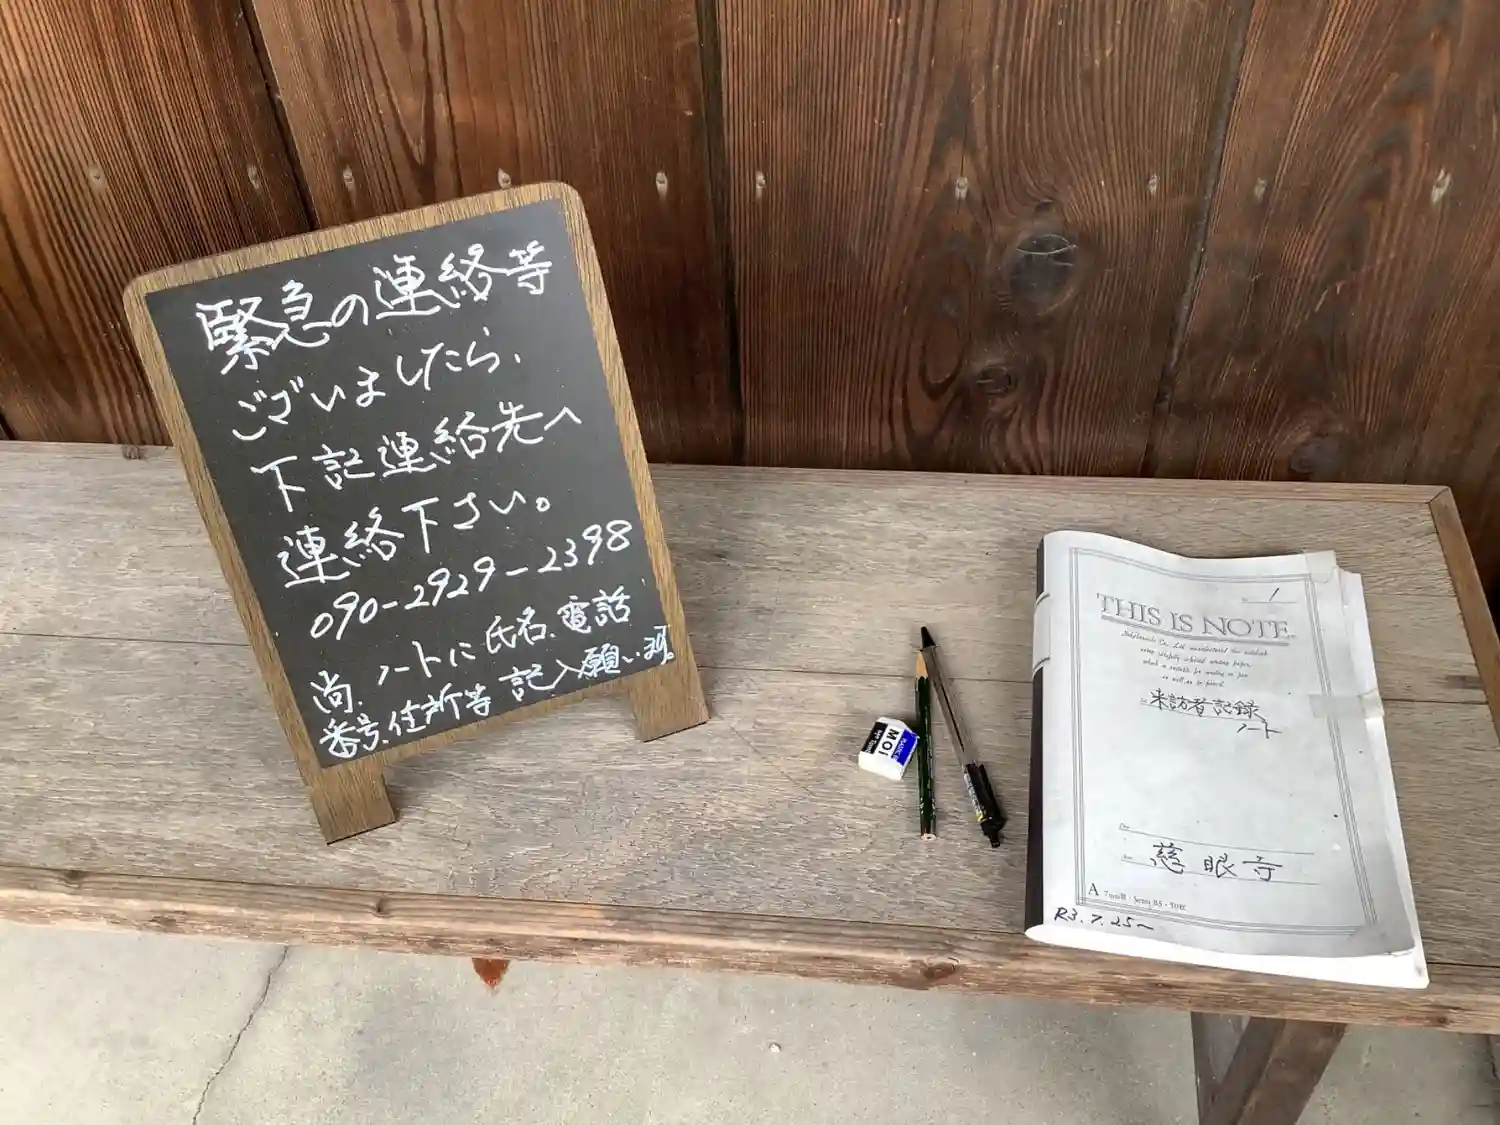 緊急の連絡等
ございましたら、
下記連絡先へ
連絡下さい。
090-2929-2398
尚、ノートに氏名、電話
番号、住所等 記入願います。
MOI
1
THIS IS NOTE
来訪者記録
ノート
慈眼寺
A
R3.7.25~